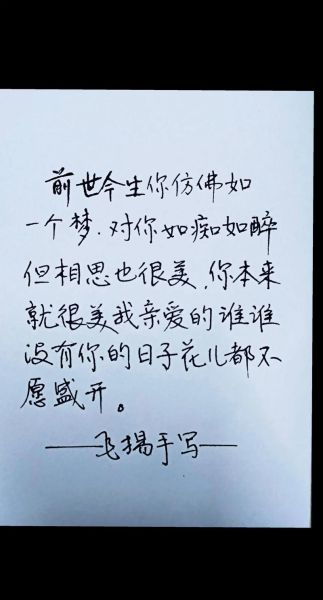 前世今生你仿佛如
一个梦.对你如痴如醉
但相思也很美,你本来
就很美我亲爱的谁谁
没有你的日子花儿都不
愿盛开。
——飞扬手写——